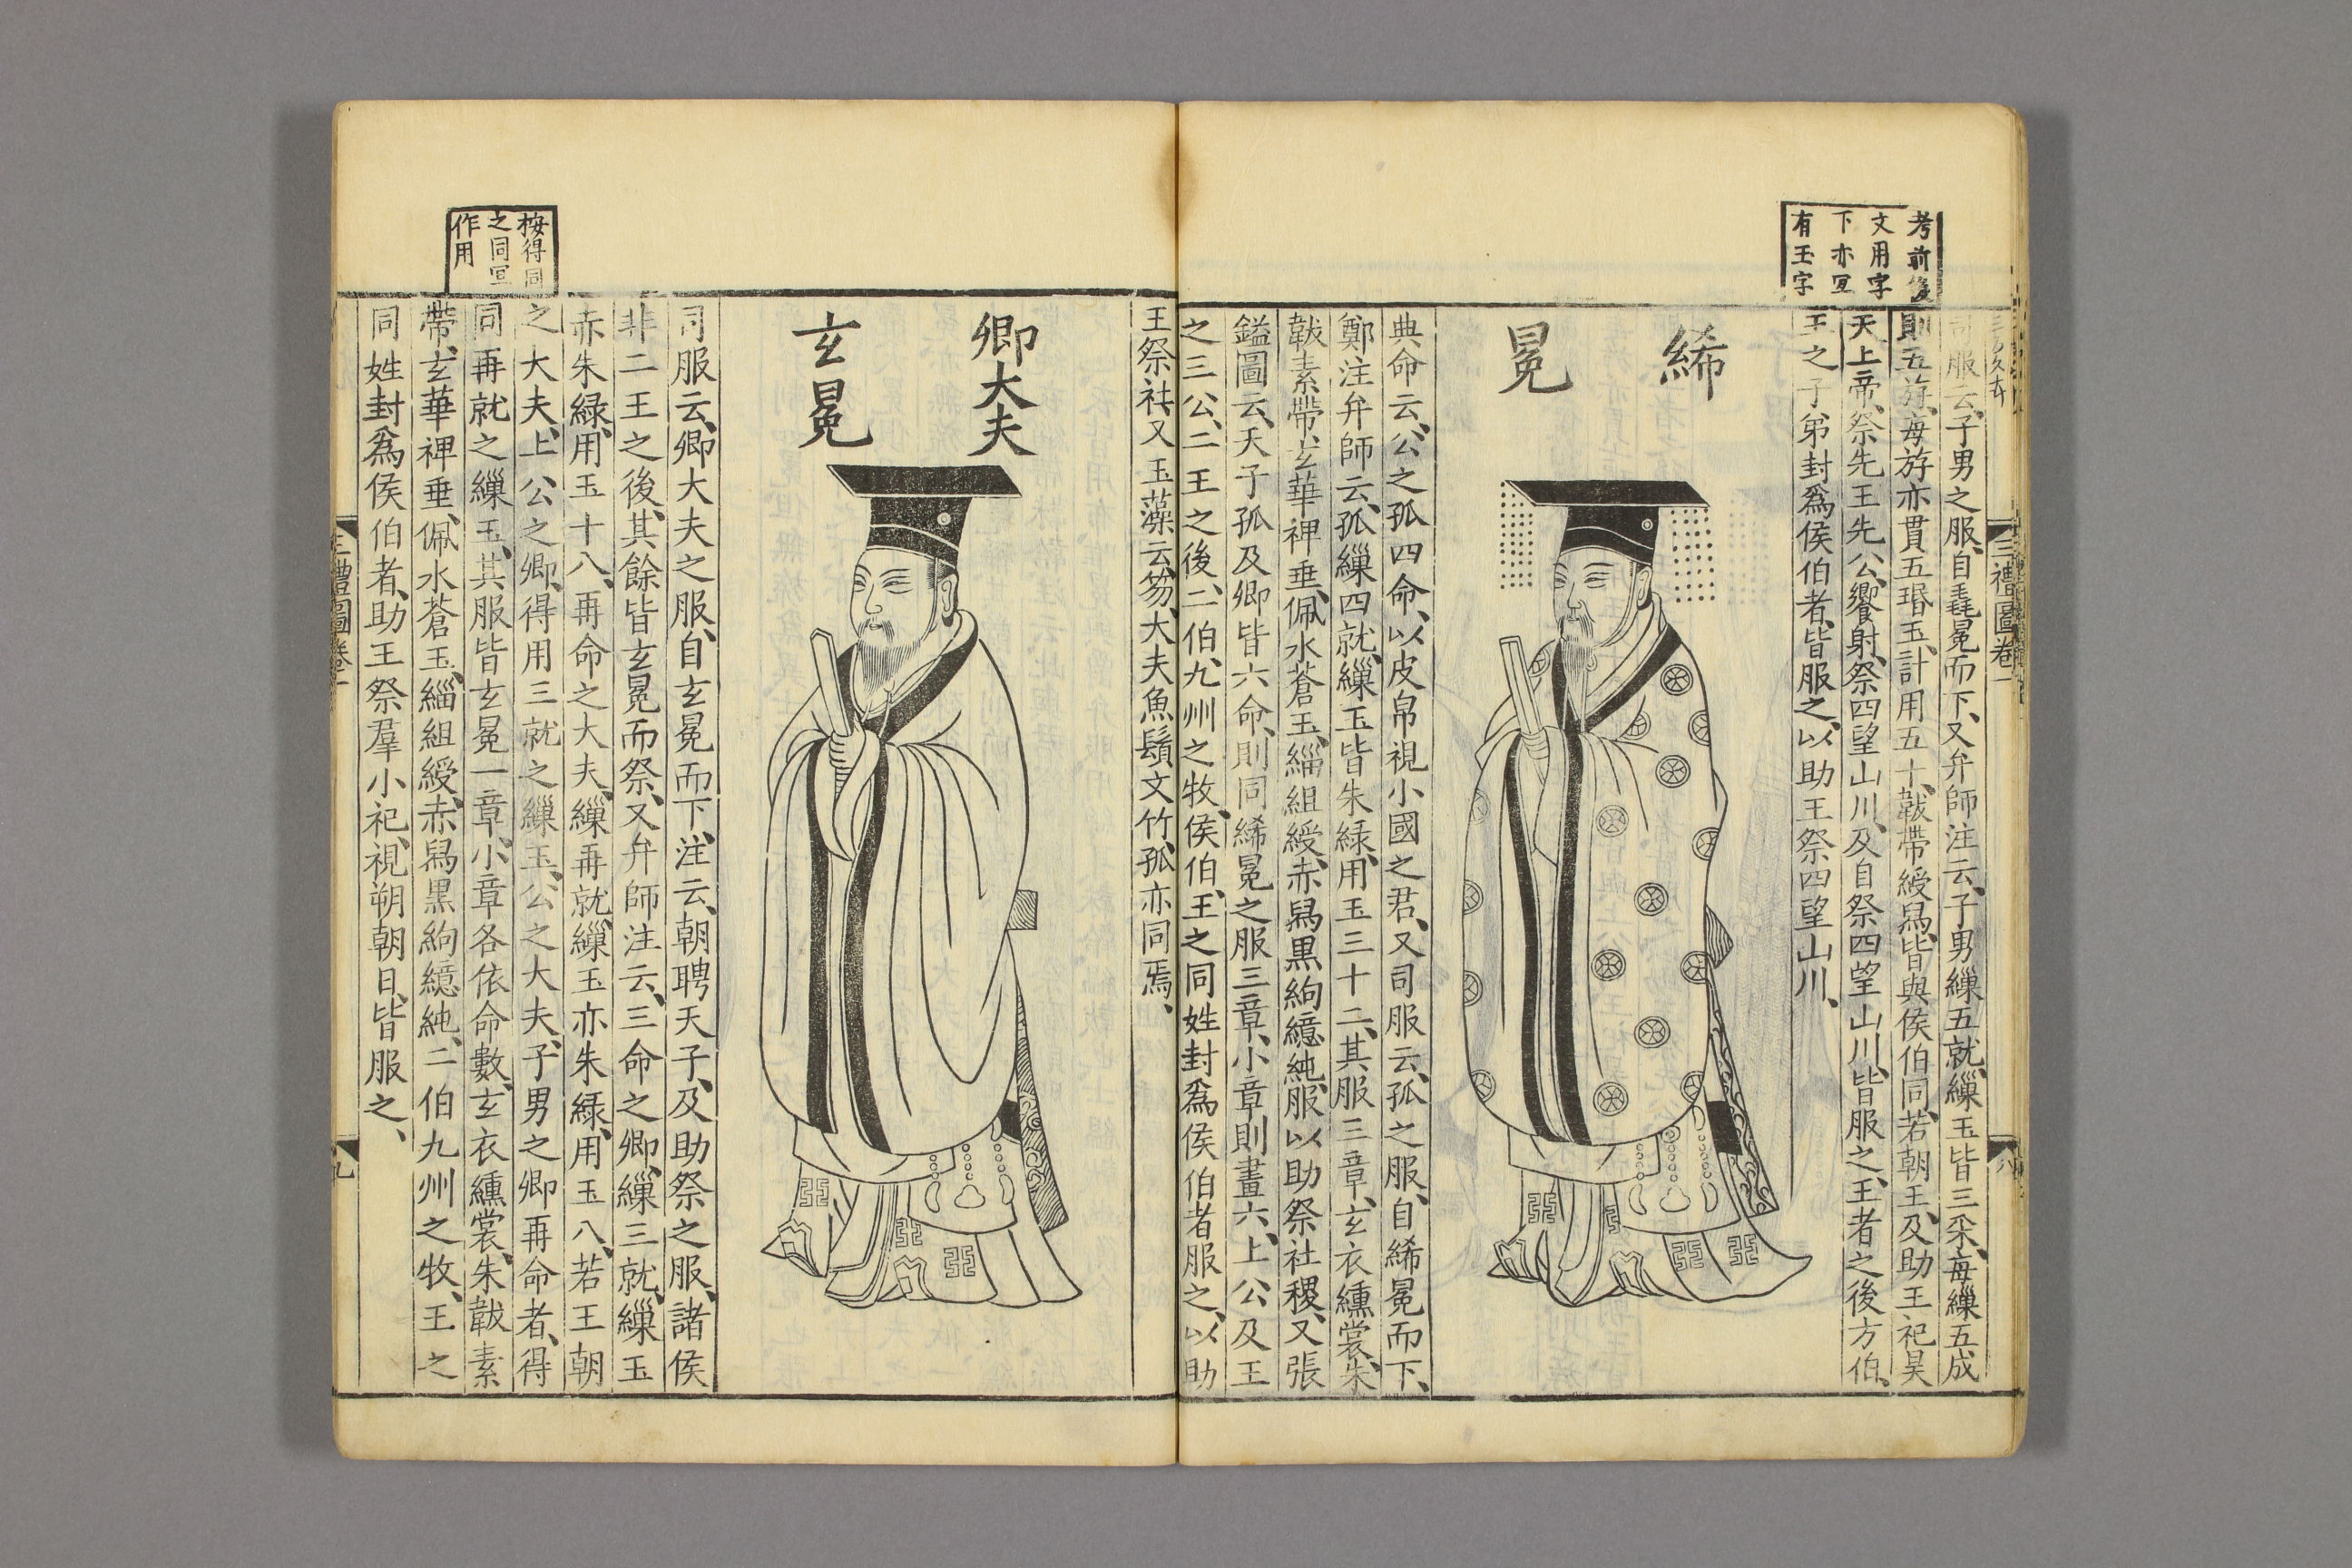 考前後
文用字
下亦冝
有玉字
司服云、子男之服、自毳冕而下、又弁師注云、子男繅五就、繅玉皆三采、每繅五成
則五斿、每斿亦貫五㻉玉、計用五十、韍帶綬舄、皆與侯伯同、若朝王、及助王祀昊
天上帝、祭先王先公、饗射、祭四望山川、及自祭四望山川、皆服之、王者之後方伯、
王之子弟封爲侯伯者、皆服之、以助王祭四望山川、
絺
冕
典命云、公之孤四命、以皮帛視小國之君、又司服云、孤之服、自絺冕而下、
鄭注弁師云、孤繅四就、繅玉皆朱綠、用玉三十二、其服三章、玄衣纁裳、朱
韍素帶、玄華裨垂、佩水蒼玉、緇組綬、赤舄黒絇繶純、服以助祭社稷、又張
鎰圖云、天子孤及卿皆六命、則同絺冕之服三章、小章則畫六、上公及王
之三公、二王之後、二伯、九州之牧、侯伯、王之同姓封爲侯伯者服之、以助
王祭社、又玉藻云、笏、大夫魚鬚文竹、孤亦同焉、
三禮圖卷一
八
卿大夫
玄冕
桉得同
之同冝
作用
司服云、卿大夫之服、自玄冕而下、注云、朝聘天子、及助祭之服、諸侯
非二王之後、其餘皆玄冕而祭、又弁師注云、三命之卿、繅三就、繅玉
亦朱綠、用玉十八、再命之大夫、繅再就、繅玉亦朱綠、用玉八、若王朝
之大夫、上公之卿、得用三就之繅玉、公之大夫、子男之卿再命者、得
同再就之繅玉、其服皆玄冕一章、小章各依命數、玄衣纁裳、朱韍素
帶、玄華裨垂、佩水蒼玉、緇組綬、赤舄黒絇繶純、二伯九州之牧、王之
同姓封爲侯伯者、助王祭羣小祀、視朔朝日、皆服之、
三禮圖卷一
九